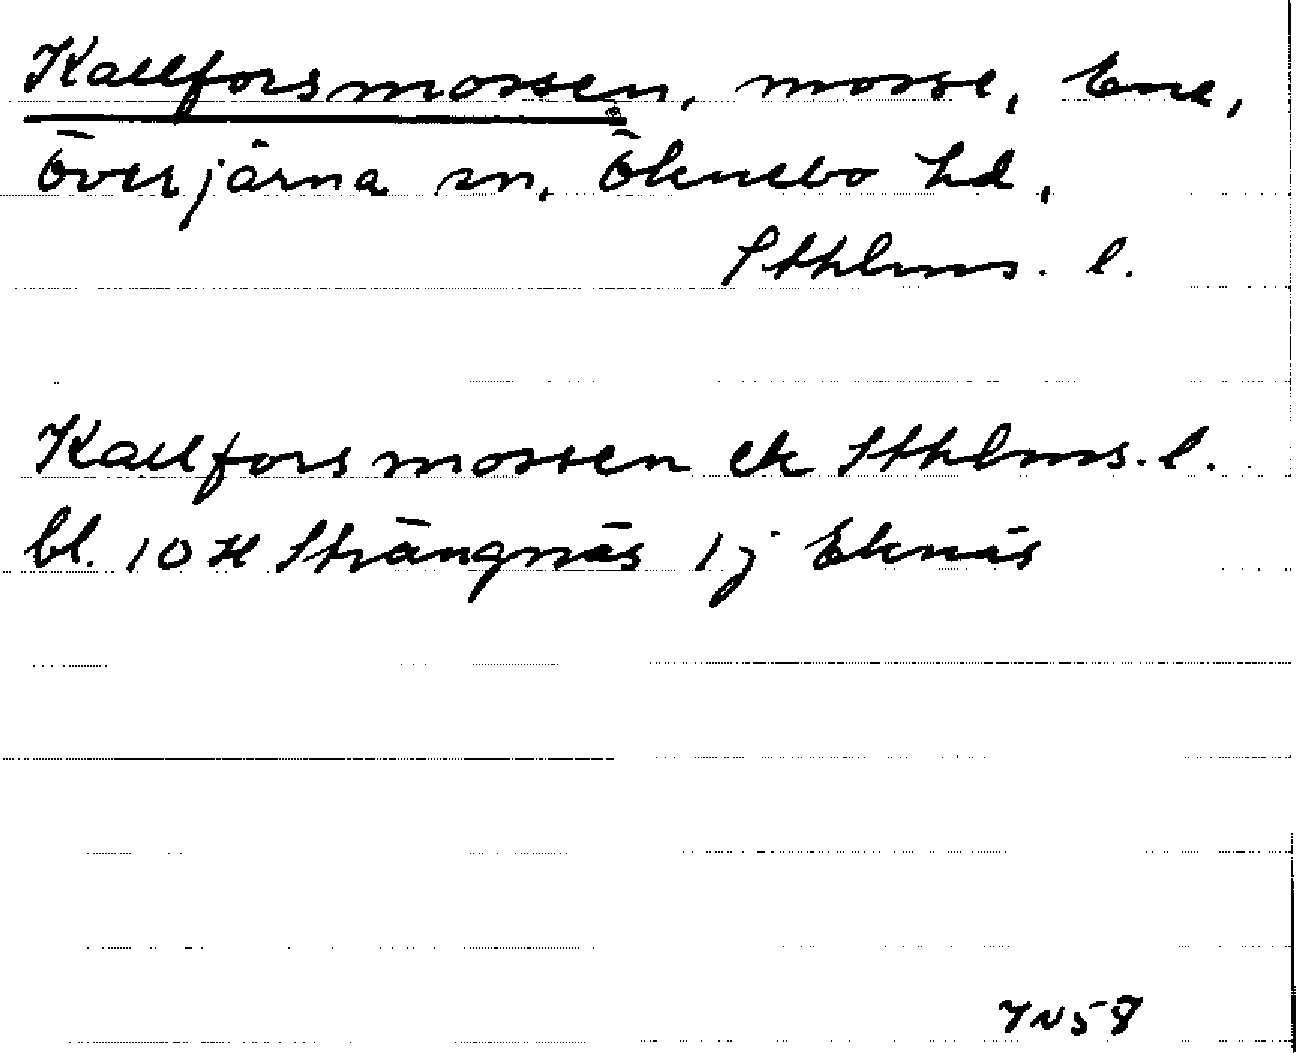 Kallforsmossen, mosse, Ene,
Överjärna sn, Öknebo hd,
Sthlms. l.
Kallforsmossen ek Sthlms. l.
bl. 10 H Strängnäs 1j Eknäs
7N58